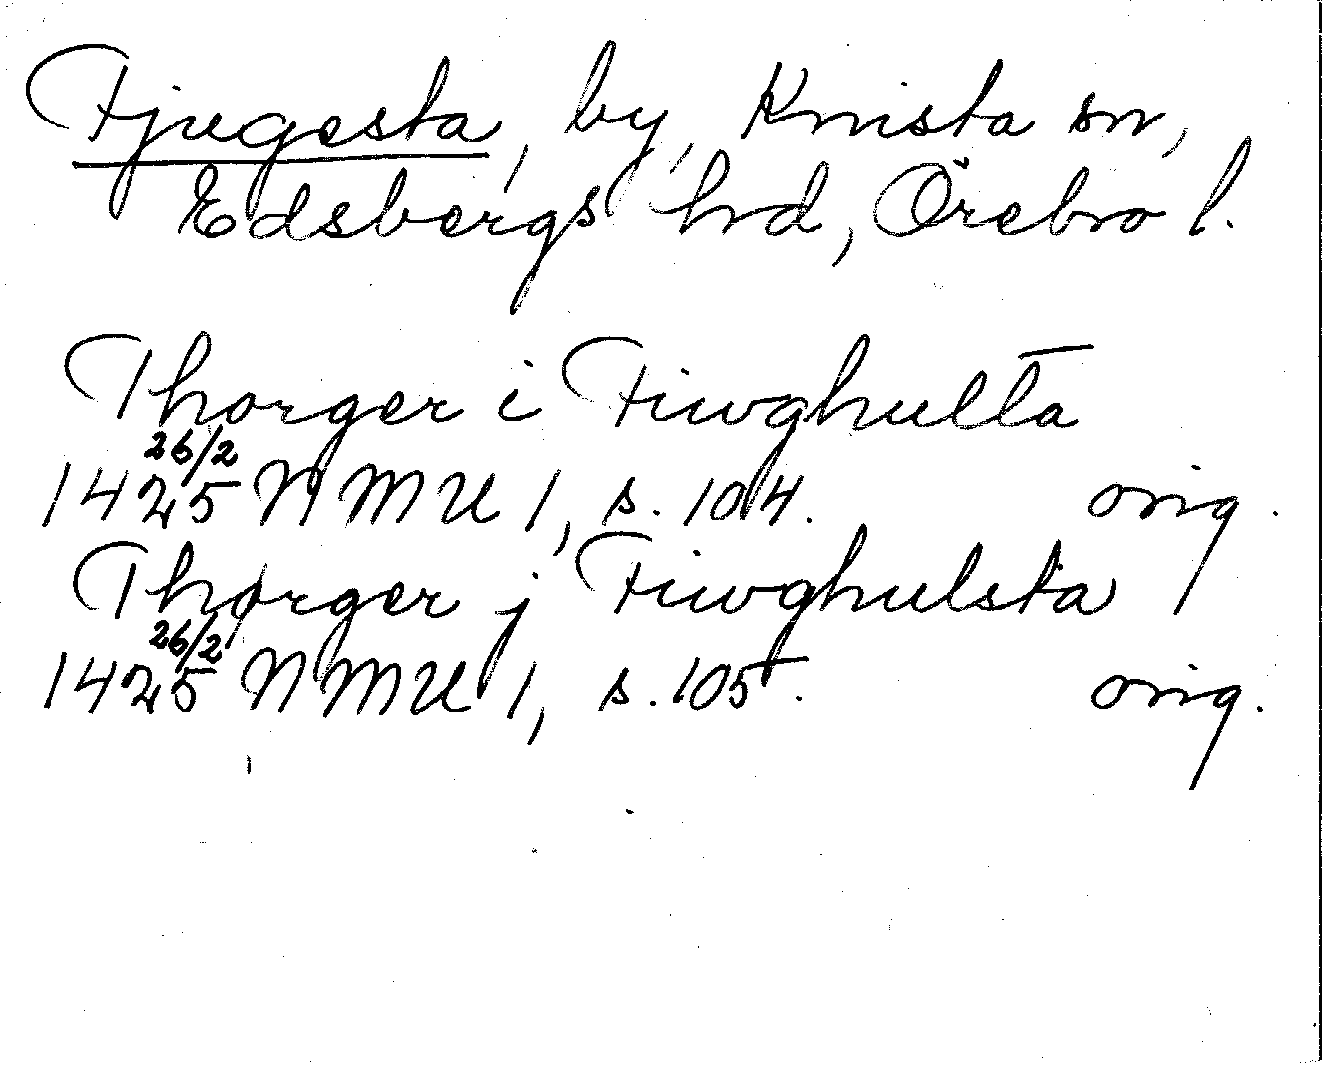 Fjugesta, by, Knista sn,
Edsbergs hrd, Örebro l.
Thorger i Fiwghulta
1425 26/2 NMU 1, s. 104. orig.
Thorger j Fiwghulsta
1425 26/2 NMU 1, s. 105. orig.